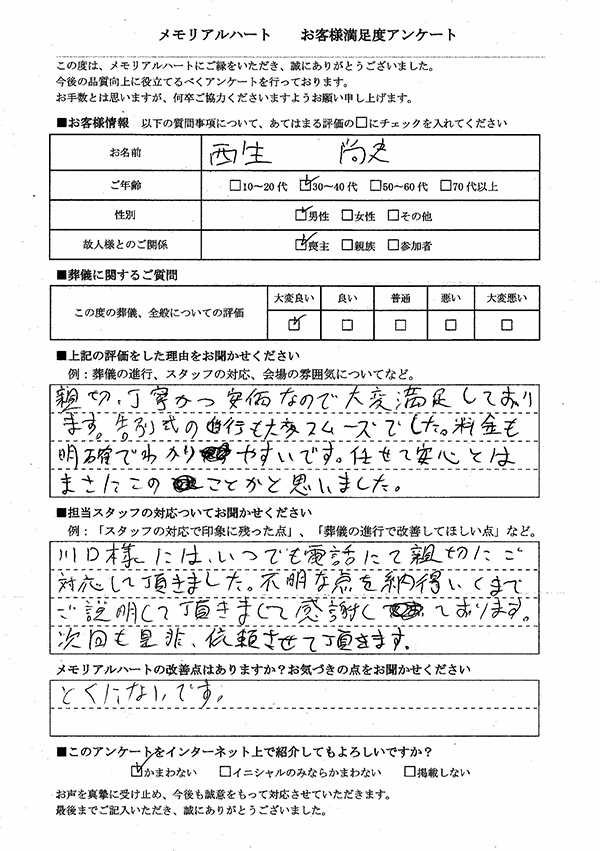 メモリアルハート　お客様満足度アンケート
この度は、メモリアルハートにご縁をいただき、誠にありがとうございました。
今後の品質向上に役立てるべくアンケートを行っております。
お手数とは思いますが、何卒ご協力くださいますようお願い申し上げます。
■お客様情報　以下の質問事項について、あてはまる評価の□にチェックを入れてください
お名前　西生　尚史
ご年齢　□10～20代　☑30～40代　□50～60代　□70代以上
性別　☑男性　□女性　□その他
故人様とのご関係　☑喪主　□親族　□参加者
■葬儀に関するご質問
大変良い　良い　普通　悪い　大変悪い
この度の葬儀、全般についての評価　☑　□　□　□　□
■上記の評価をした理由をお聞かせください
例：葬儀の進行、スタッフの対応、会場の雰囲気についてなど。
親切、丁寧かつ安価なので大変満足しており
ます。告別式の進行も大変スムーズでした。料金も
明確でわかりやすいです。任せて安心とは
まさにこのことかと思いました。
■担当スタッフの対応ついてお聞かせください
例：「スタッフの対応で印象に残った点」、「葬儀の進行で改善してほしい点」など。
川口様には、いつでも電話にて親切にご
対応して頂きました。不明な点を納得いくまで
ご説明して頂きまして感謝しております。
次回も是非、依頼させて頂きます。
メモリアルハートの改善点はありますか？お気づきの点をお聞かせください
とくにないです。
■このアンケートをインターネット上で紹介してもよろしいですか？
☑かまわない　□イニシャルのみならかまわない　□掲載しない
お声を真摯に受け止め、今後も誠意をもって対応させていただきます。
最後までご記入いただき、誠にありがとうございました。